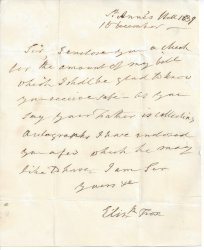 St Anne's Hill 1839
15 December
Sir I enclose you a check
for the amount of my bill
which I shall be glad to hear
you receive safe. As you
say your Father is collecting
Autographs I have enclosed
you a few which he may
like to have. I am Sir
yours &c
Elizth Fox